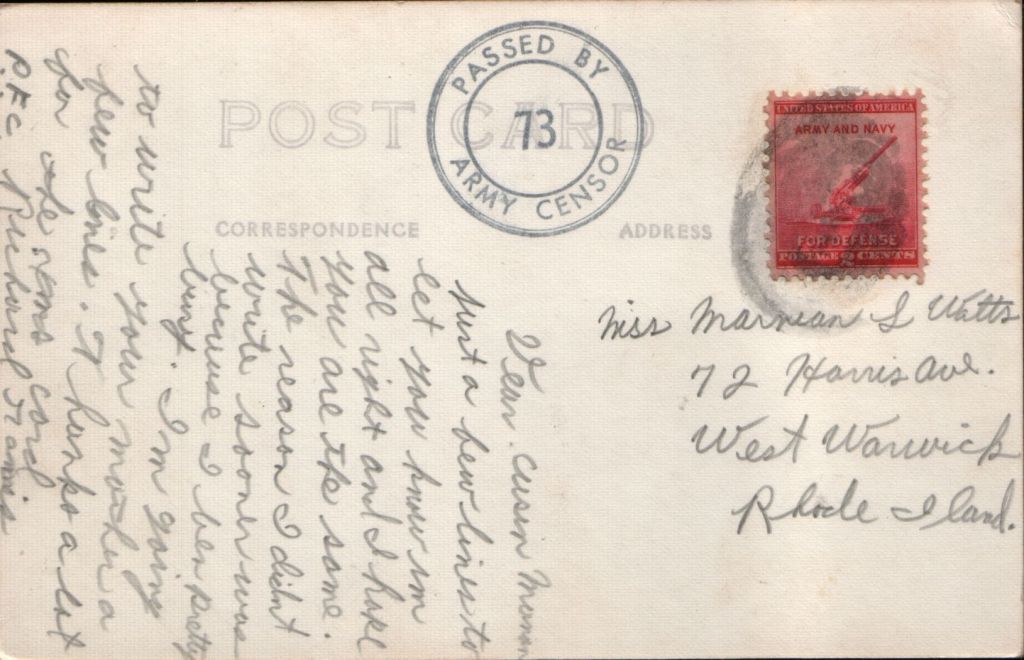 POST CARD
PASSED BY
73
ARMY CENSOR
UNITED STATES OF AMERICA
ARMY AND NAVY
FOR DEFENSE
POSTAGE 2 CENTS
CORRESPONDENCE
ADDRESS
Miss Marnian L Watts
72 Harris Ave.
West Warwick
Rhode Iland.
Dear Cusin
Just a few lines to
let you know im
all right and I hope
you are the same.
The reason I didnt
write sooner was
because I ben pretty
busy. I'm going
to write your mother a
few lines. Thanks a lot
for the xams card
P.F.C. Richard